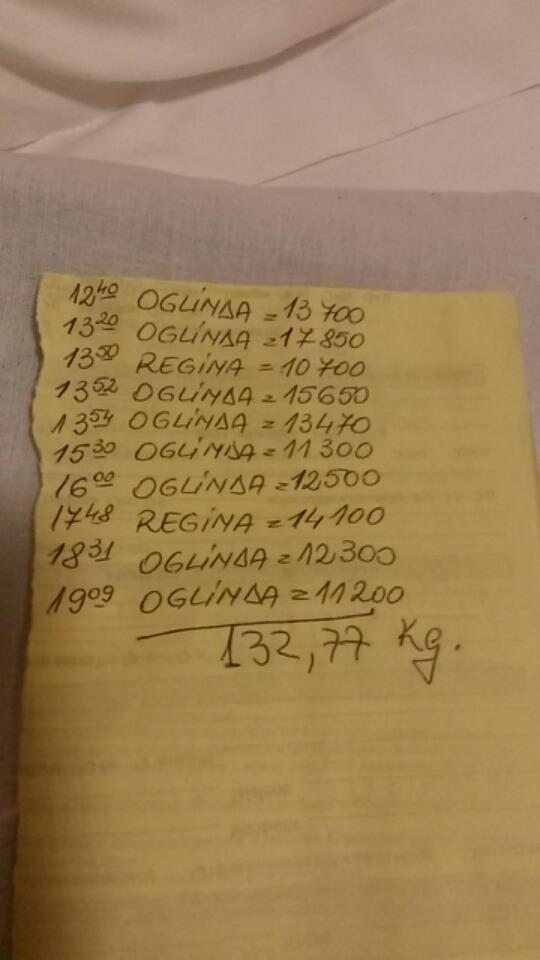 12⁴⁰ OGLINDA = 13 700
13²⁰ OGLINDA = 17 850
13⁵⁰ REGINA = 10 700
13⁵² OGLINDA = 15650
13⁵⁴ OGLINDA = 13470
15³⁰ OGLINDA = 11 300
16⁰⁰ OGLINDA = 12,500
17⁴⁸ REGINA = 14 100
18³¹ OGLINDA = 12,300
19⁰⁹ OGLINDA = 11200
132,77 Kg.